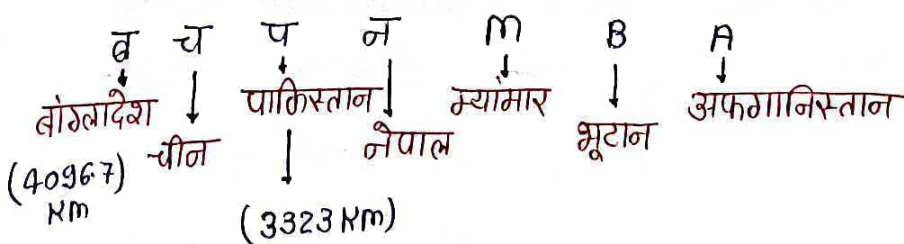 ब च प न M B A
बांग्लादेश चीन पाकिस्तान नेपाल म्यांमार भूटान अफगानिस्तान
(4096.7) KM (3323 KM)